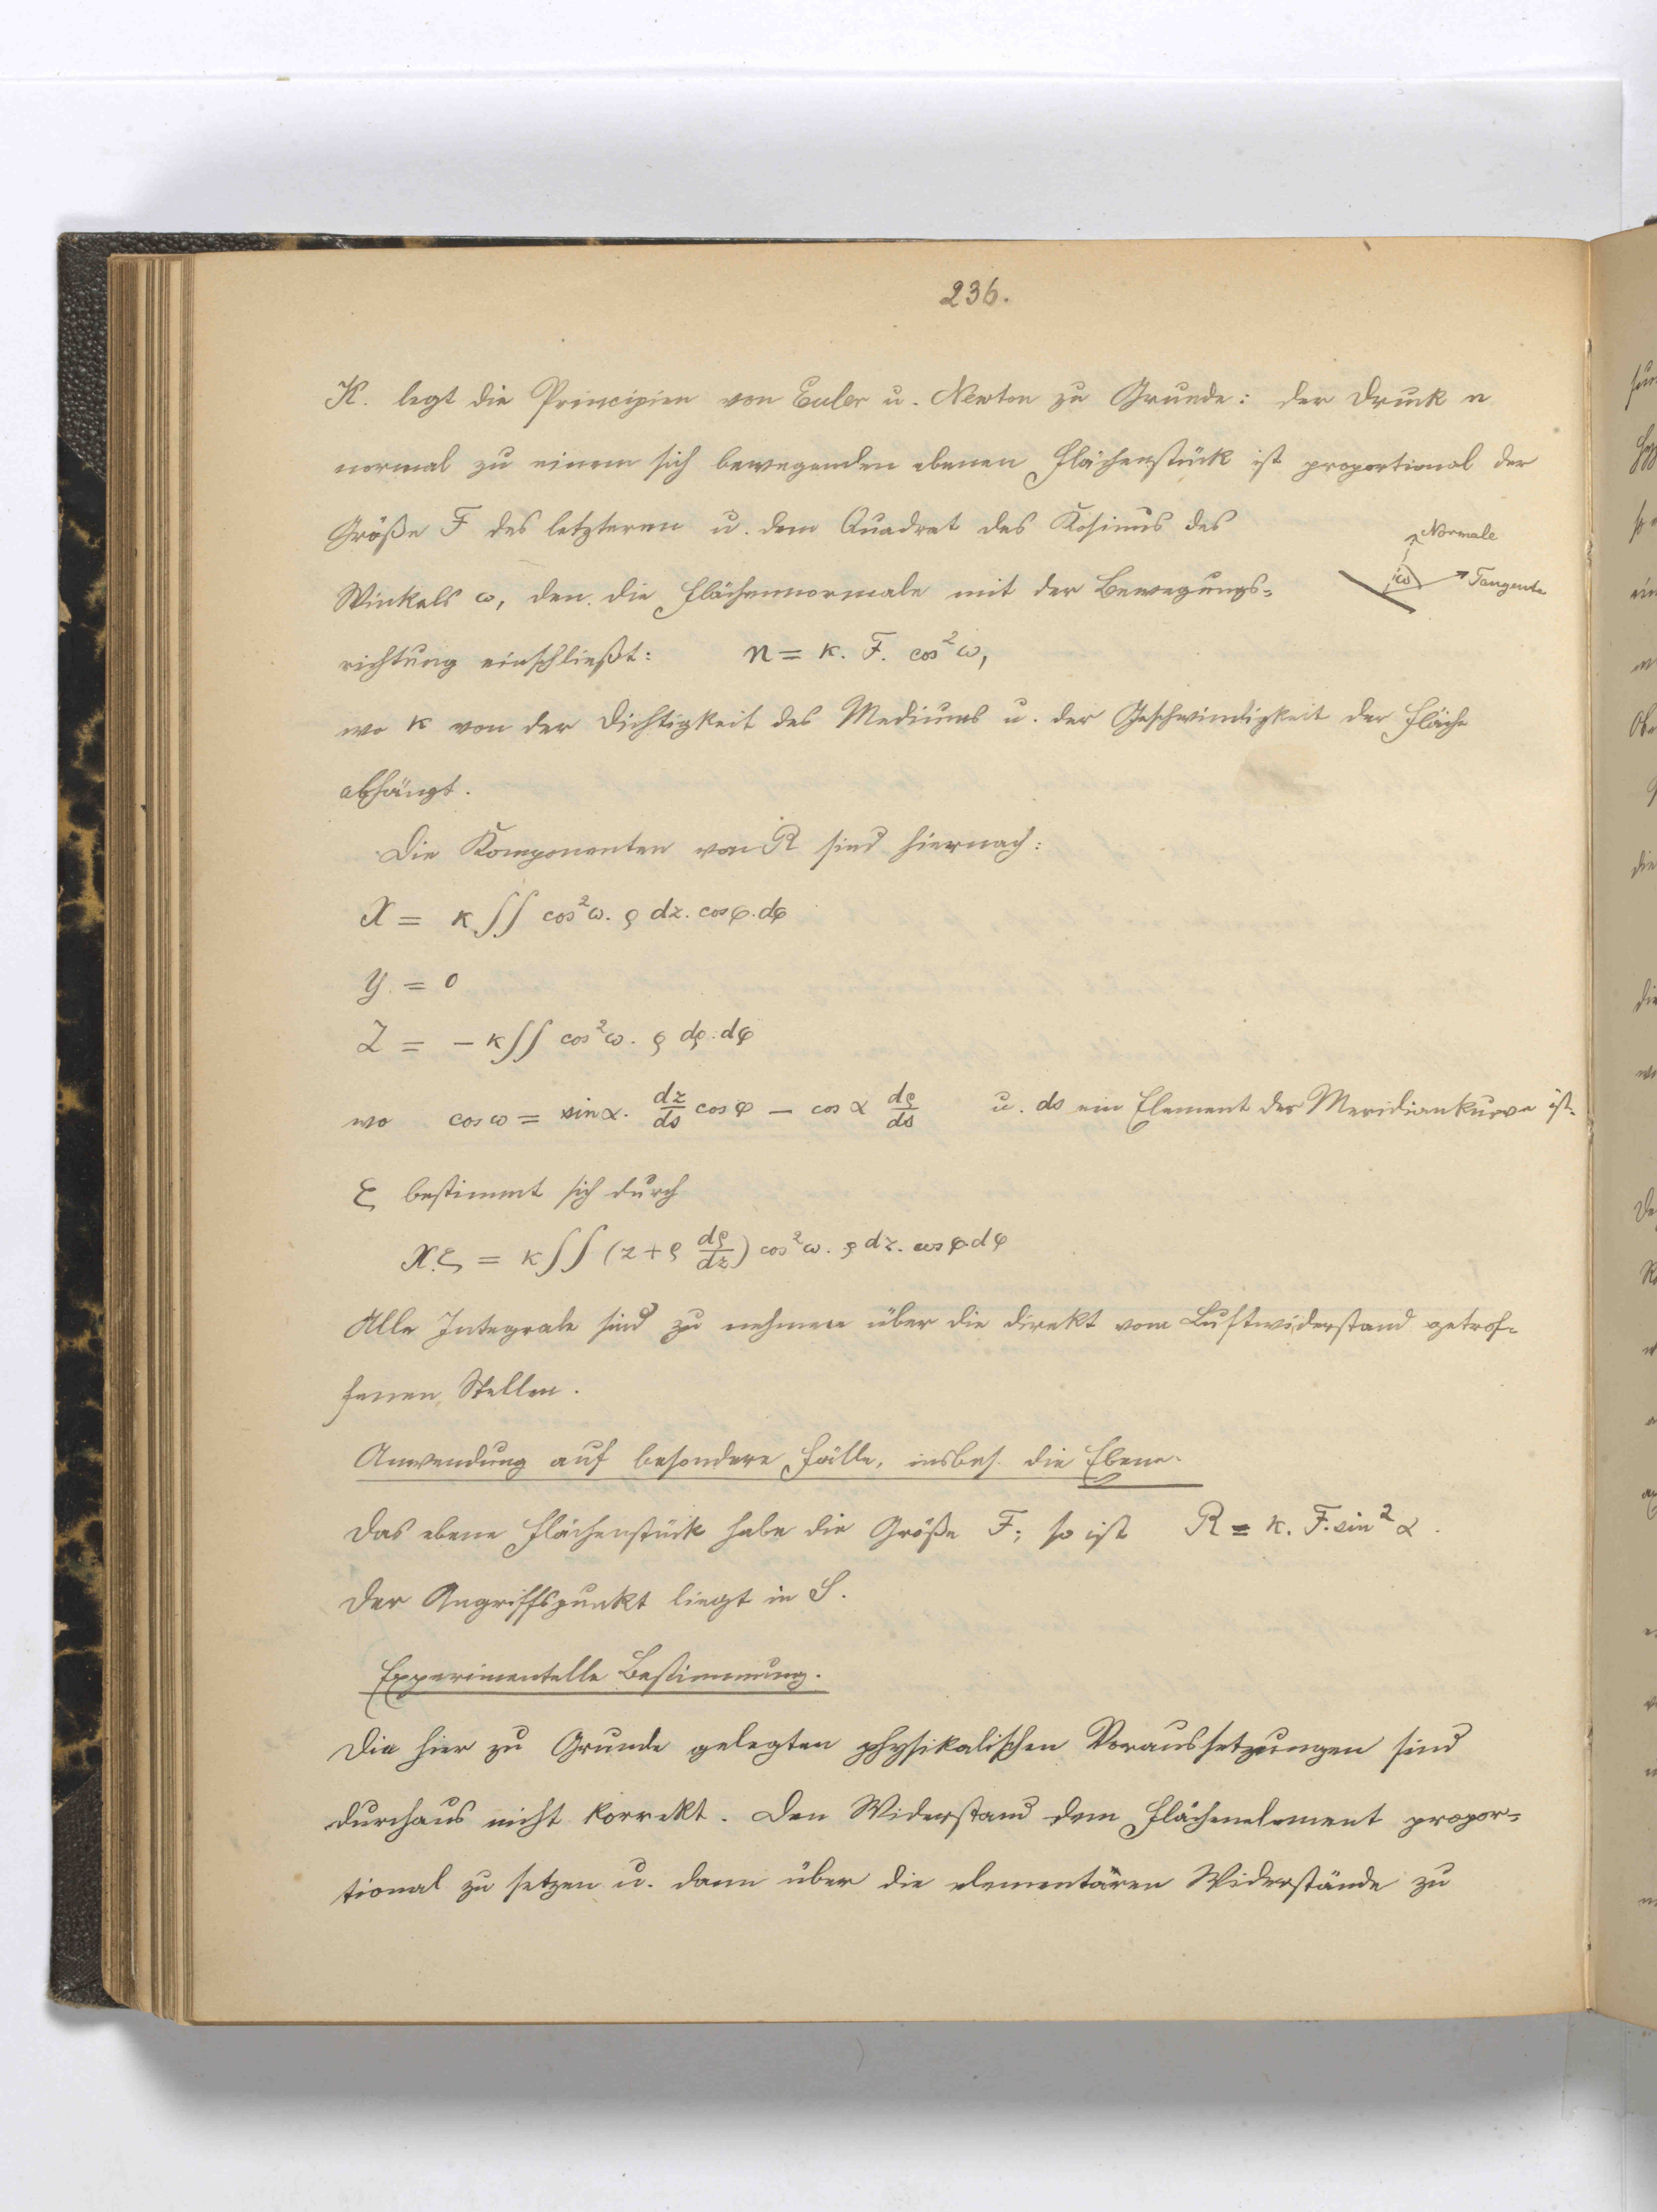 236.
K. legt die Principien von Euler u. Newton zu Grunde: der Druck n
normal zu einem sich bewegenden ebenen Flächenstück ist proportional der
Größe F des letzteren u. dem Quadrat des Kosinus des
Normale
Winkels ω, den die Flächennormale mit der Bewegungs=
ω
Tangente
richtung einschließt: n = κ. F. cos²ω,
wo κ von der Dichtigkeit des Mediums u. der Geschwindigkeit der Fläche
abhängt.
Die Komponenten von R sind hiernach:
X = κ ∬ cos²ω. ρ dz. cosφ. dφ
Y = 0
Z = – κ ∬ cos²ω. ρ dρ. dφ
wo cos ω = sin α. dz/ds cos φ – cos α dρ/ds u. ds ein Element der Meridiankurve ist.
ζ bestimmt sich durch
X.ζ = κ ∬ (z + ρ dρ/dz) cos²ω. ρ dz. cos φ. dφ
Alle Integrale sind zu nehmen über die direkt vom Luftwiderstand getrof=
fenen Stellen.
Anwendung auf besondere Fälle, insbes. die Ebene.
Das ebene Flächenstück habe die Größe F; so ist R = κ. F. sin² α.
Der Angriffspunkt liegt in S.
Experimentelle Bestimmung.
Die hier zu Grunde gelegten physikalischen Voraussetzungen sind
durchaus nicht korrekt. Den Widerstand dem Flächenelement propor=
tional zu setzen u. dann über die elementären Widerstände zu